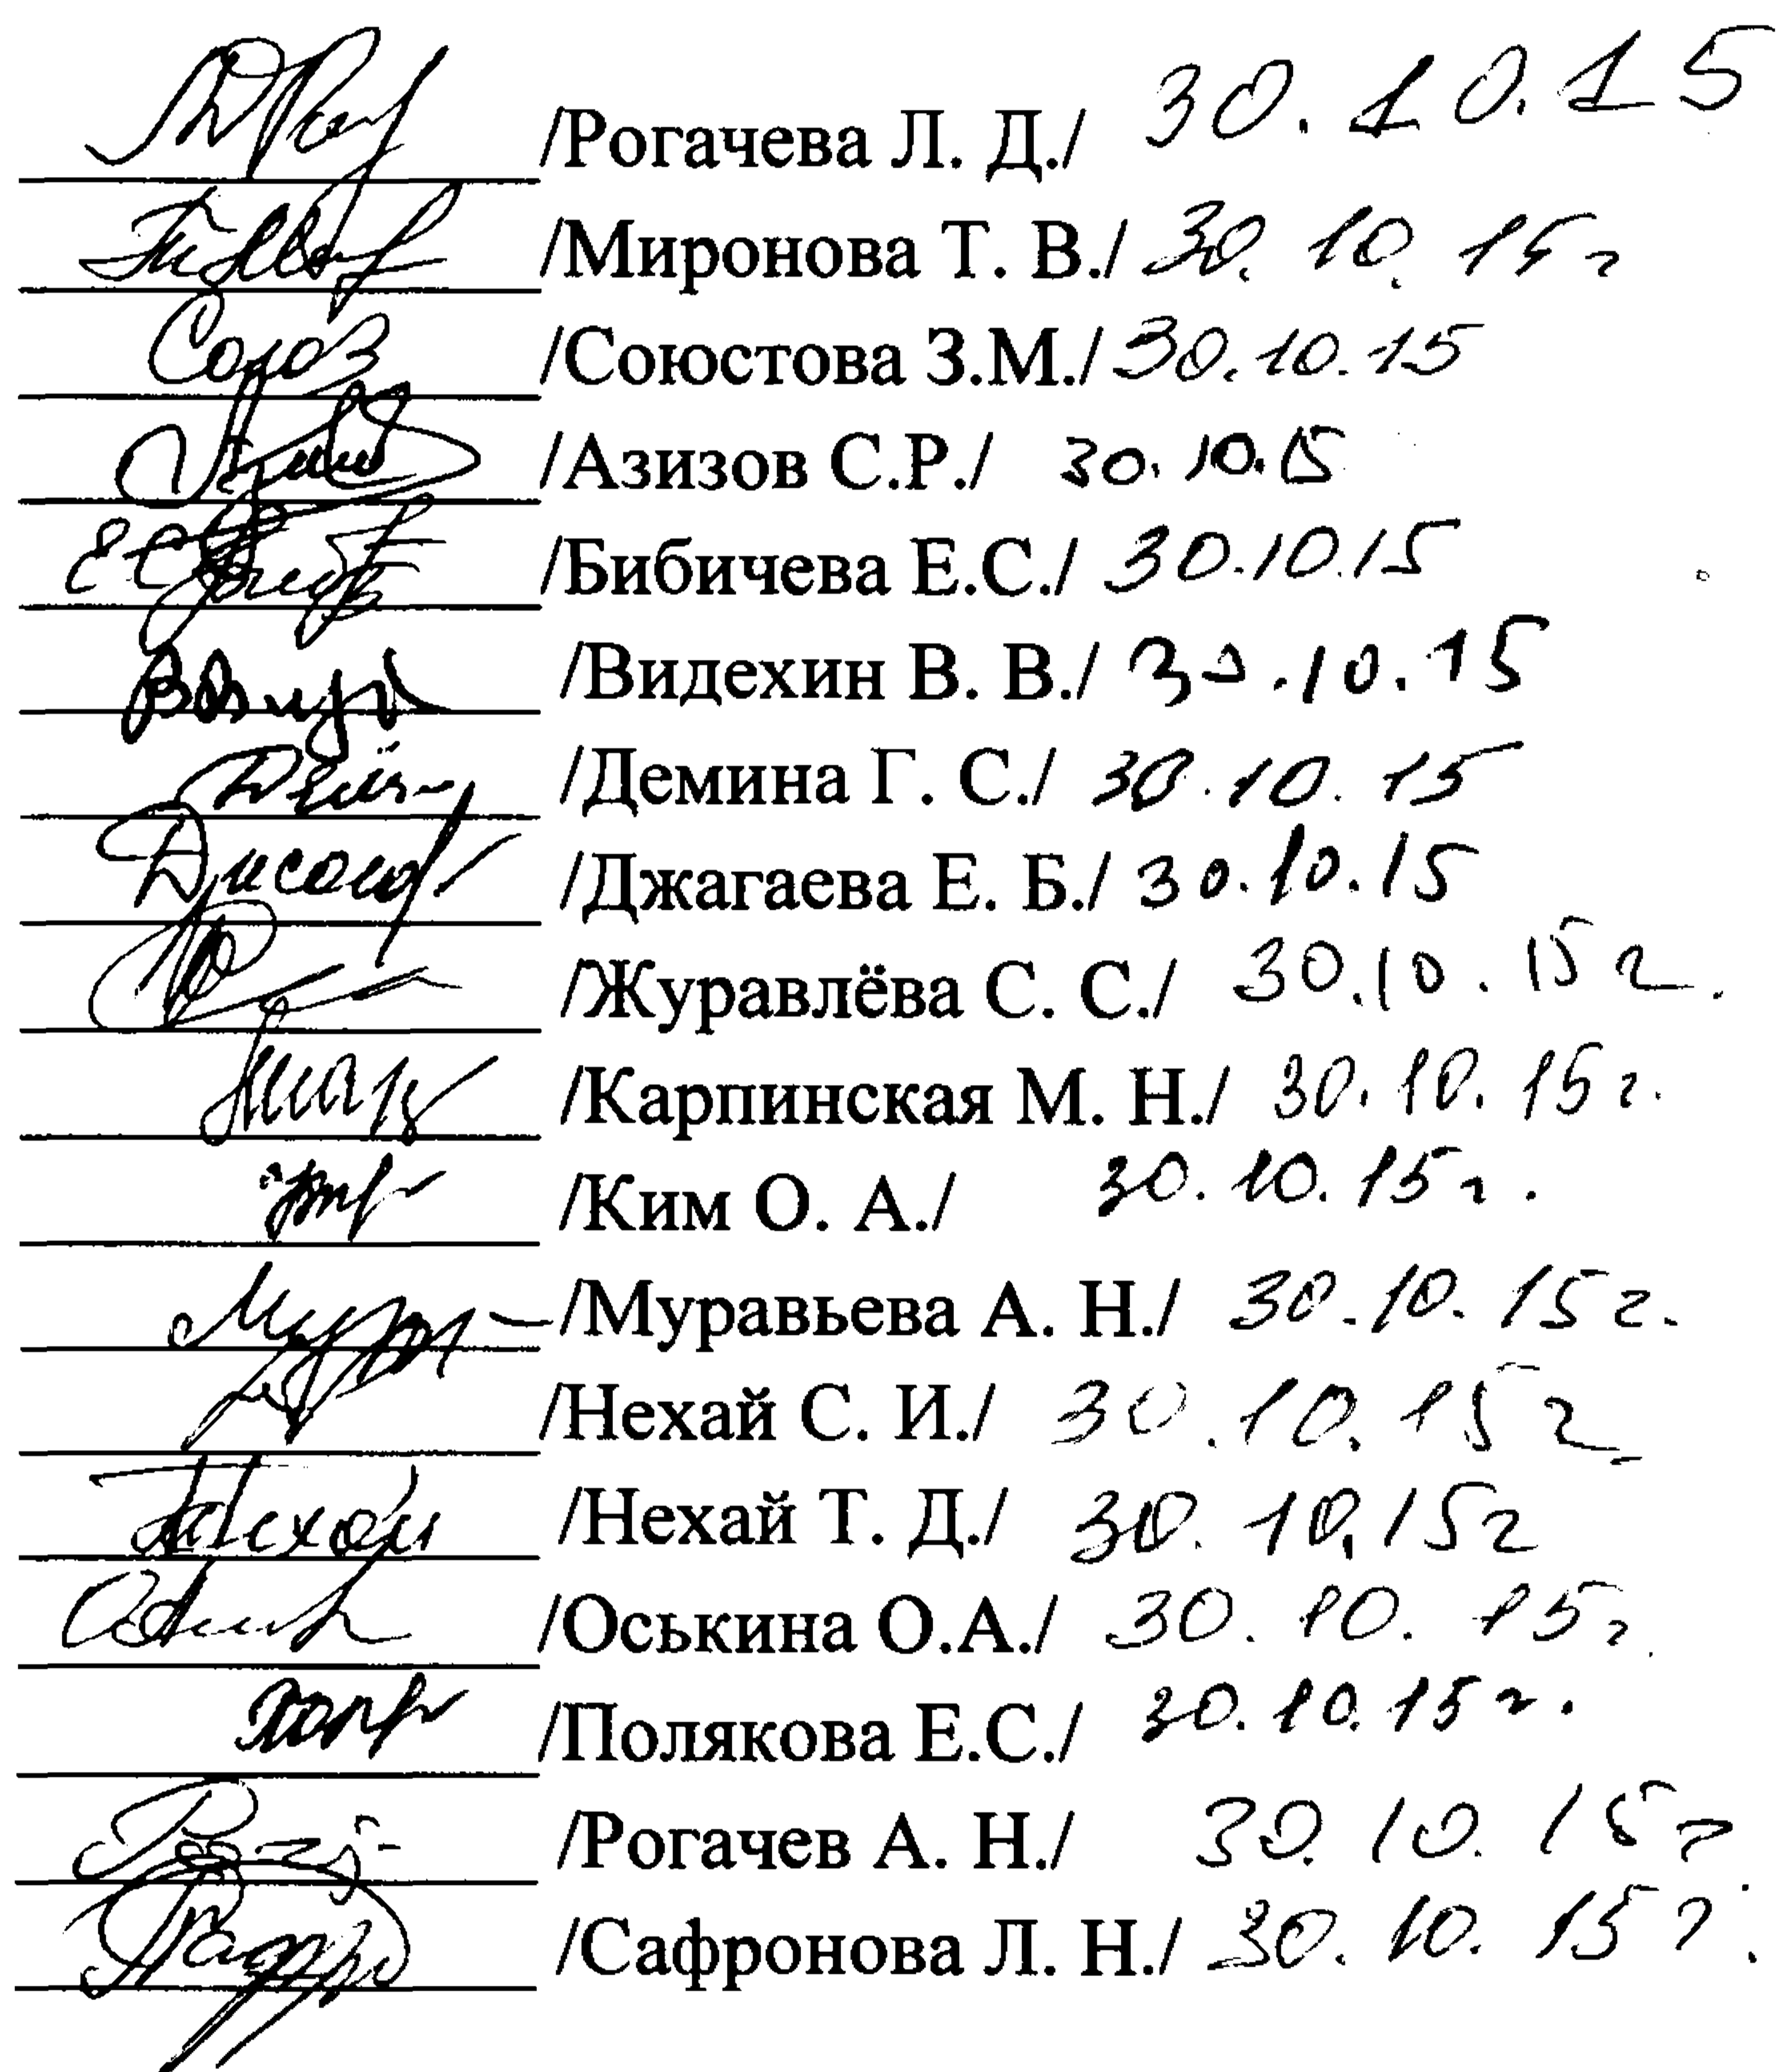 /Рогачева Л. Д./ 30.10.15
/Миронова Т. В./ 30.10.15г
Союз /Союстова З.М./ 30.10.15
/Азизов С.Р./ 30.10.15
/Бибичева Е.С./ 30.10.15
/Видехин В. В./ 30.10.15
/Демина Г. С./ 30.10.15
/Джагаева Е. Б./ 30.10.15
/Журавлёва С. С./ 30.10.15г.
/Карпинская М. Н./ 30.10.15г.
/Ким О. А./ 30.10.15г.
/Муравьева А. Н./ 30.10.15г.
/Нехай С. И./ 30.10.15г
/Нехай Т. Д./ 30.10.15г
/Оськина О.А./ 30.10.15г.
/Полякова Е.С./ 30.10.15г.
/Рогачев А. Н./ 30.10.15г
/Сафронова Л. Н./ 30.10.15г.